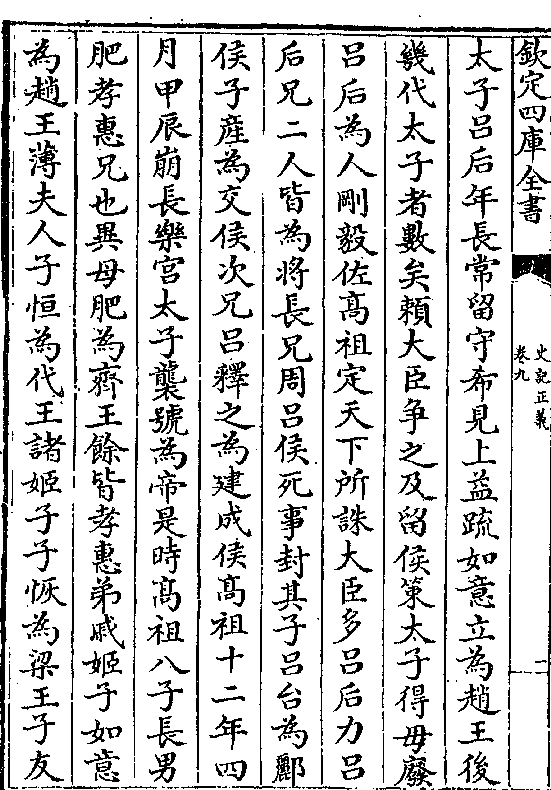 欽定四庫全書
史記正義
卷九
二
太子吕后年長常留守希見上益疏如意立為趙王後
幾代太子者數矣賴大臣争之及留侯策太子得毋廢
吕后為人剛毅佐髙祖定天下所誅大臣多吕后力吕
后兄二人皆為将長兄周吕侯死事封其子吕台為酈
侯子産為交侯次兄吕釋之為建成侯髙祖十二年四
月甲辰崩長樂宫太子襲號為帝是時髙祖八子長男
肥孝惠兄也異母肥為齊王餘皆孝惠弟戚姬子如意
為趙王薄夫人子恒為代王諸姬子子恢為梁王子友